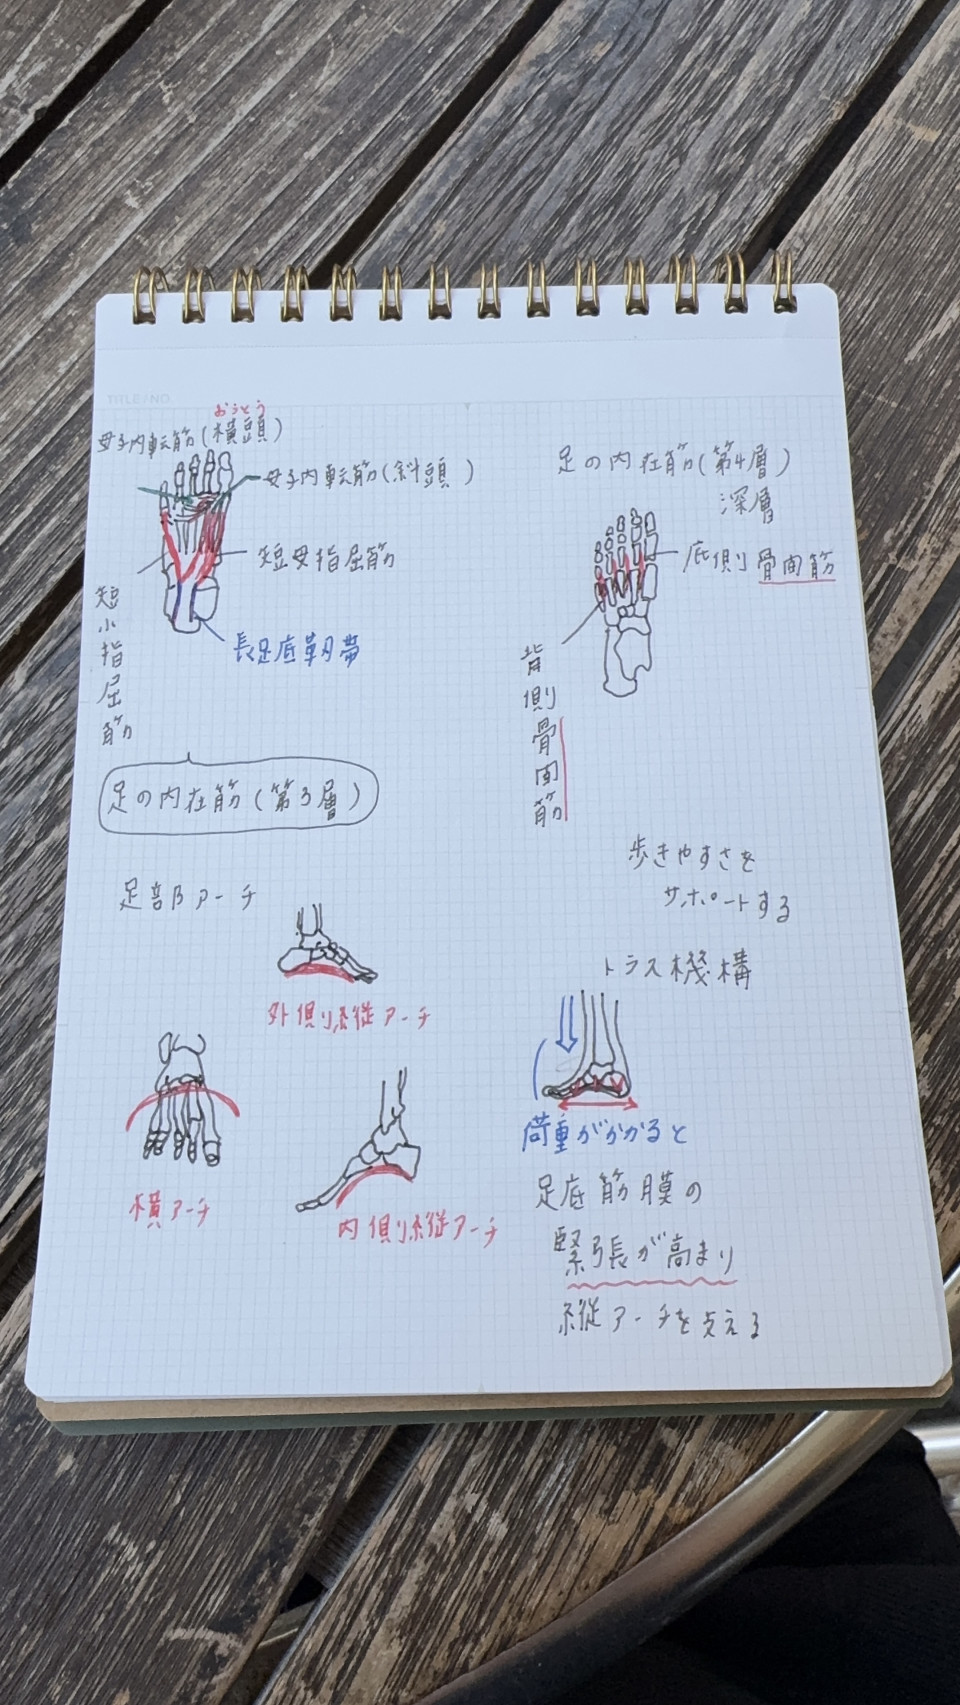 TITLE/NO.
おうとう
母子内転筋(横頭)
母子内転筋(斜頭)
短母指屈筋
短小指屈筋
長足底靭帯
足の内在筋(第3層)
足の内在筋(第4層)
深層
底側骨間筋
背側骨間筋
足部アーチ
外側縦アーチ
横アーチ
内側縦アーチ
歩きやすさを
サポートする
トラス機構
荷重がかかると
足底筋膜の
緊張が高まり
縦アーチを支える